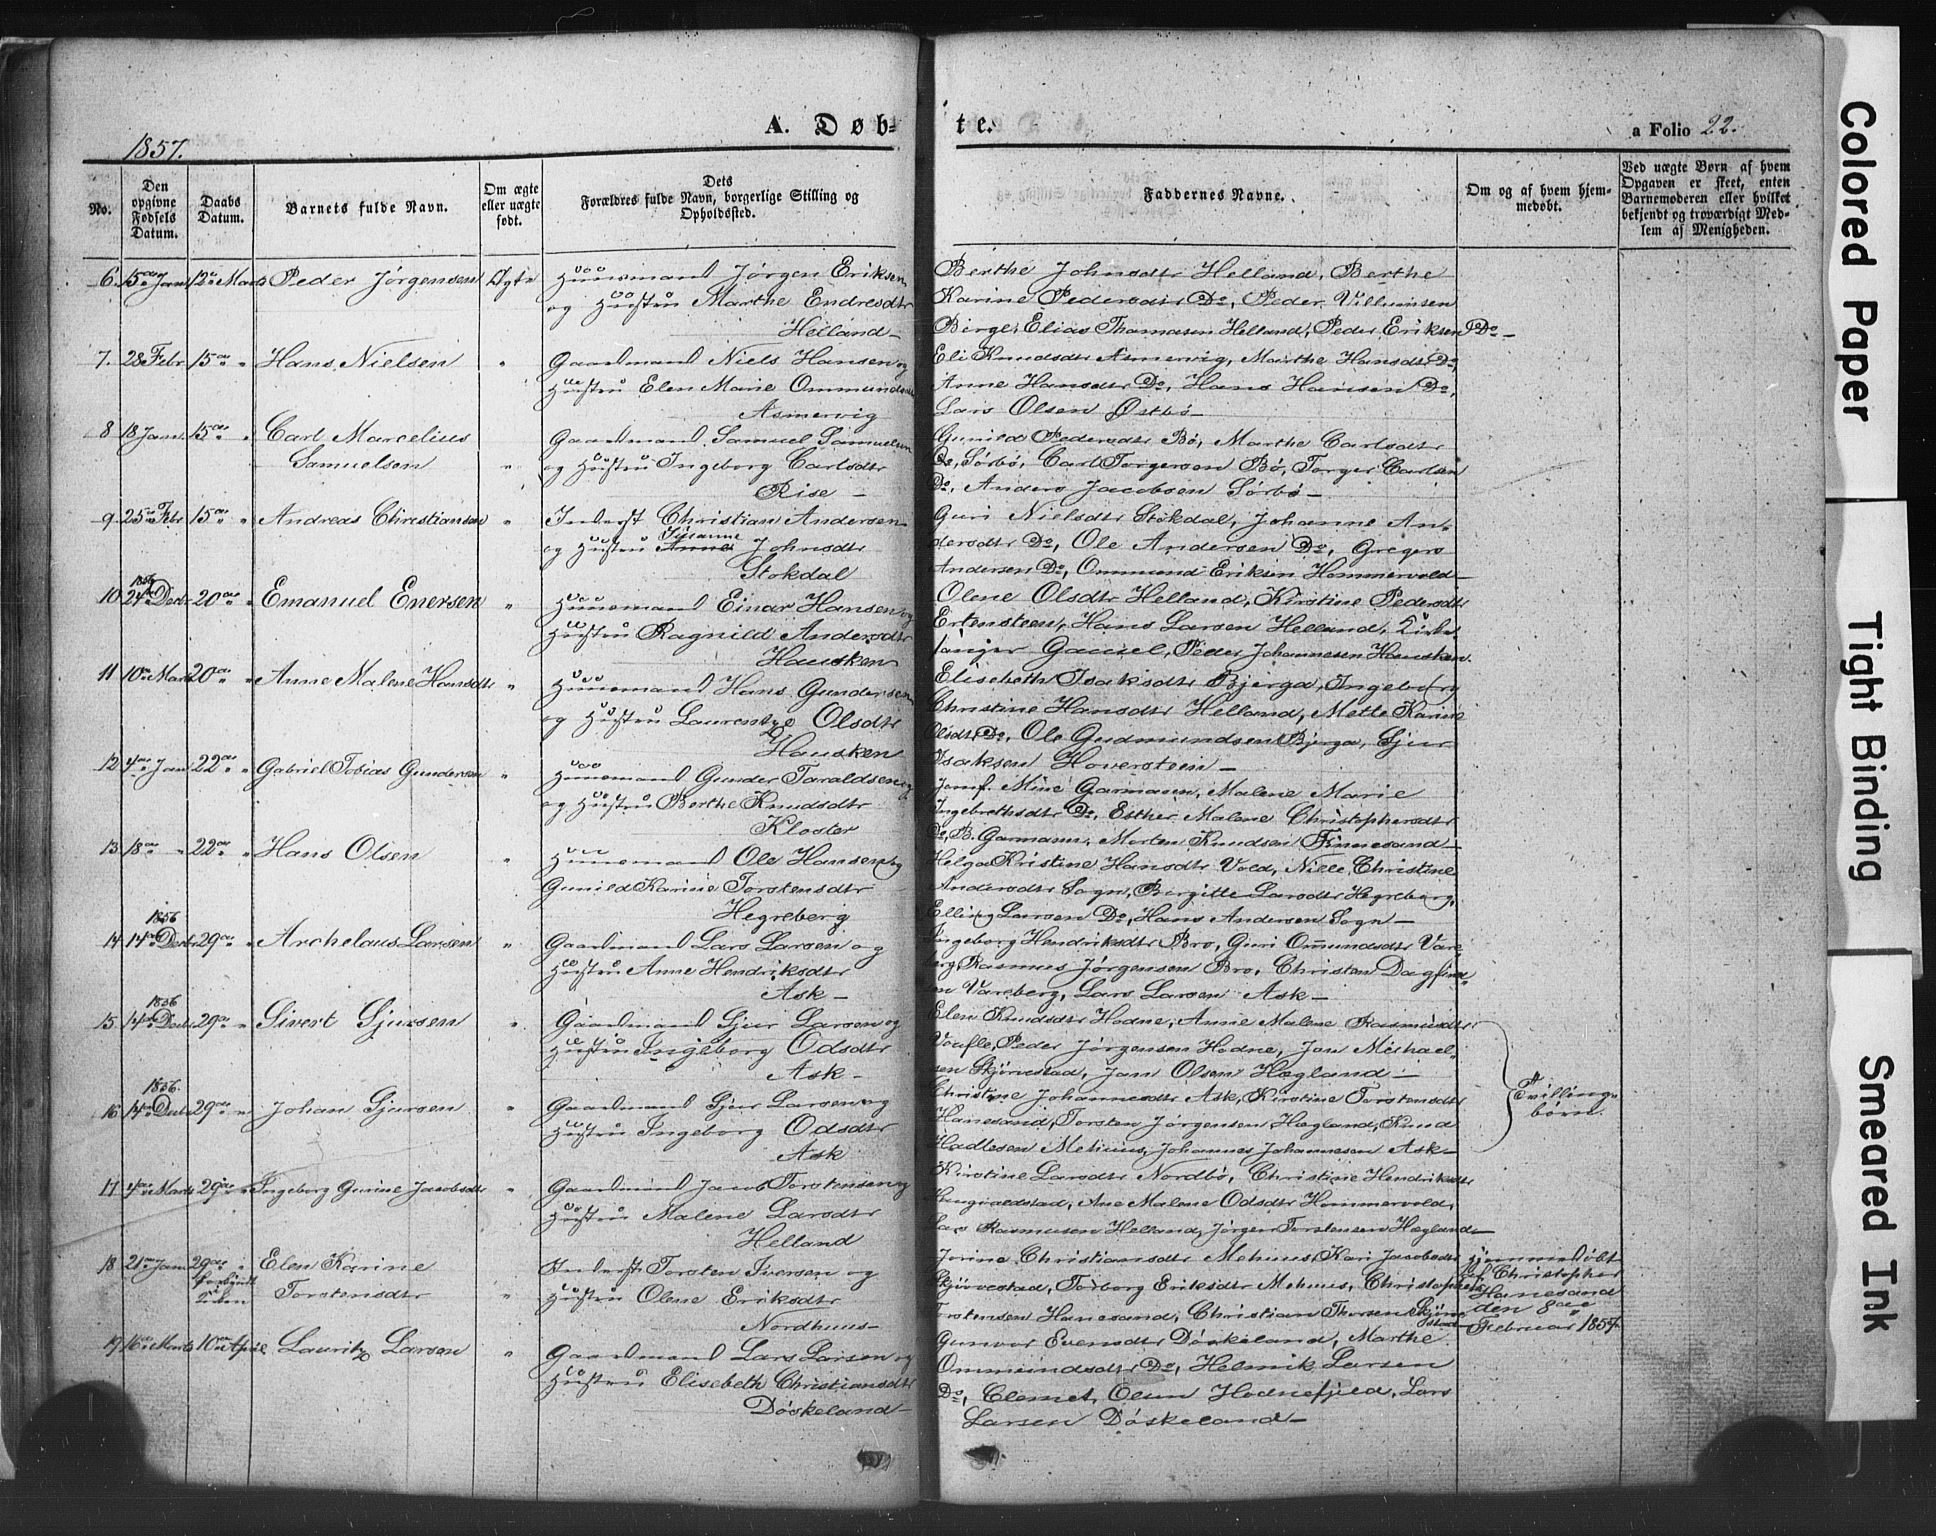 1857.
A. Døb-
te.
a Folio 22.
No.
Den opgivne Fødsels Datum.
Daabs Datum.
Barnets fulde Navn.
Om ægte eller uægte født.
Dets Forældres fulde Navn, borgerlige Stilling og Opholdsted.
Faddernes Navne.
Om og af hvem hjem-
medøbt.
Ved uægte Børn af hvem
Opgaven er skeet, enten
Barnemoderen eller hvilket
bekjendt og troværdigt Med-
lem af Menigheden.
6. 15de Jan 12te Marts Peder Jørgensen Ægte Huusmand Jørgen Eriksen
og Hustru Marthe Endresdtr
Helland
Berthe Johnsdtr Helland, Berthe
Karine Pedersdtr Do, Peder Villumsen
Birge, Elias Thomasen Helland, Peder Eriksen Do
7. 28 Febr 15de " Hans Nielsen " Gaardmand Niels Hansen og
Hustru Elen Marie Ommunds
Asmervig
Eli Knudsdtr Asmervig, Marthe Hansdtr Do,
Anne Hansdtr Do, Hans Hansen Do,
Lars Olsen Østbø
8 18 Jan 15de " Carl Marcelius
Samuelsen " Gaardmand Samuel Samuelsen
og Hustru Ingeborg Carlsdtr
Rise
Gunild Pedersdtr Bø, Marthe Carlsdtr
Do, Sørbø, Carl Torgersen Bø, Torger Carlsen
Do, Anders Jacobsen Sørbø
9 25de Febr 15de " Andreas Christiansen " Inderst Christian Andersen
og Hustru Anne Susanne Johnsdtr
Stokdal
Guri Nielsdtr Stokdal, Johanne An-
dersdtr Do, Ole Andersen Do, Gregers
Andersen Do, Ommund Eriksen Hommervold
1856
10 24de Decbr 20de " Emanuel Enersen " Huusmand Einar Hansen og
Hustru Ragnild Andersdtr
Hausken
Olene Olsdtr Helland, Kirstine Pedersdtr
Ertensteen, Hans Larsen Helland, Kirke-
sanger Gausel, Peder Johannesen Hausken.
11 10de Marts 20de " Anne Malene Hansdtr " Huusmand Hans Gundersen
og Hustru Laurentze Olsdtr
Hausken
Elisebeth Isaksdtr Bjerga, Ingeborg
Christine Hansdtr Helland, Mette Karine
Olsdtr Do, Ole Gudmundsen Bjerga, Sjur
Isaksen Hoversteen
12 4de Jan 22de " Gabriel Tobias Gundersen " Huusmand Gunder Taraldsen og
og Hustru Berthe Knudsdtr
Kloster
Jomf. Mine Garmasen, Malene Marie
Ingebrethsdtr Do, Esther Malene Christophersdtr
Do, B. Garmann, Morten Knudsen Finnesand
13 18de " 22de " Hans Olsen " Huusmand Ole Hansen og
Gunild Karine Torstensdtr
Hegreberg
Helga Kristine Hansdtr Vold, Nille Christine
Andersdtr Sogn, Birgitte Larsdtr Hegreberg,
Elling Larsen Do, Hans Andersen Sogn
1856
14 14de Decbr 29de " Archelaus Larsen " Gaardmand Lars Larsen og
Hustru Anne Hendriksdtr
Ask
Ingeborg Hendriksdtr Bro, Guri Omundsdtr Vare-
berg, Rasmus Jørgensen Bro, Christen Dagfind-
en Vareberg, Lars Larsen Ask
1856
15 14de Decbr 29de " Sivert Sjursen " Gaardmand Sjur Larsen og
Hustru Ingeborg Odsdtr
Ask
Elen Knudsdtr Hodne, Anne Malene Rasmusdtr
Voufle, Peder Jørgensen Hodne, Jan Michael-
sen Skjørvestad, Jan Olsen Hægland
1856.
16 14de Decbr 29de " Johan Sjursen " Gaardmand Sjur Larsen og
Hustru Ingeborg Odsdtr
Ask
Christine Johannesdtr Ask, Kirstine Torstensdtr
Hanesand, Torsten Jørgensen Hægland, Knud
Hadlesen Mehuus, Johannes Johannesen Ask
Tvillinge-
børn.
17 4de Marts 29de " Ingeborg Gurine Jacobsdtr " Gaardmand Jacob Torstensen og
Hustru Malene Larsdtr
Helland
Kirstine Larsdtr Nordbø, Christine Hendriksdtr
Ane Malene Odsdtr Hommervold,
Lars Rasmusen Helland, Jørgen Torstensen Hægland
18 21de Jan 29de " Elen Karine
Torstensdtr " Inderst Torsten Iversen og
Hustru Olene Eriksdtr
Nordhuus
Jorine Christiansdtr Mehuus, Kari Jacobsdtr
Skjørvestad, Torborg Eriksdtr Mehuus, Christopher
Torstensen Hanesand, Christian Thorsen Skjørve-
stad
hjemmedøbt
af Christopher
Hanesand
den 8de
Februar 1857.
19 16de Marts 10de April Lauritz Larsen " Gaardmand Lars Larsen og
Hustru Elisebeth Christiansdtr
Døskeland
Gunvor Evensdtr Døskeland, Marthe
Ommundsdtr Do, Helmik Larsen
Do, Clemet Olsen Hodnefjeld, Lars
Larsen Døskeland
Colored Paper
Tight Binding
Smeared Ink